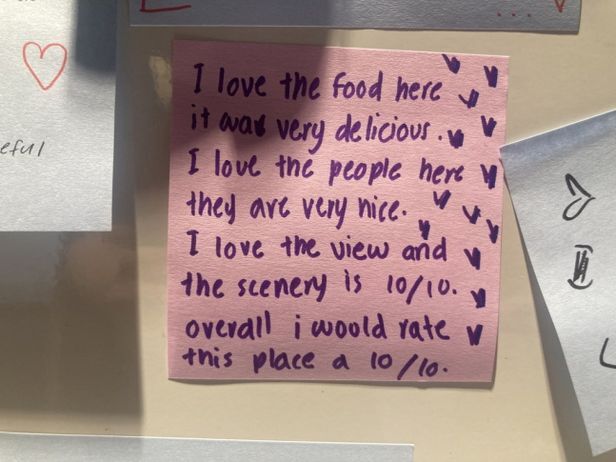 eful
I love the food here
it was very delicious.
I love the people here
they are very nice.
I love the view and
the scenery is 10/10.
overall i woold rate
this place a 10/10.